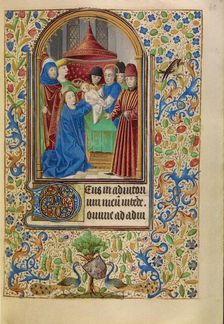 Deus in adiutori
um meū intēde
Domine ad adiu